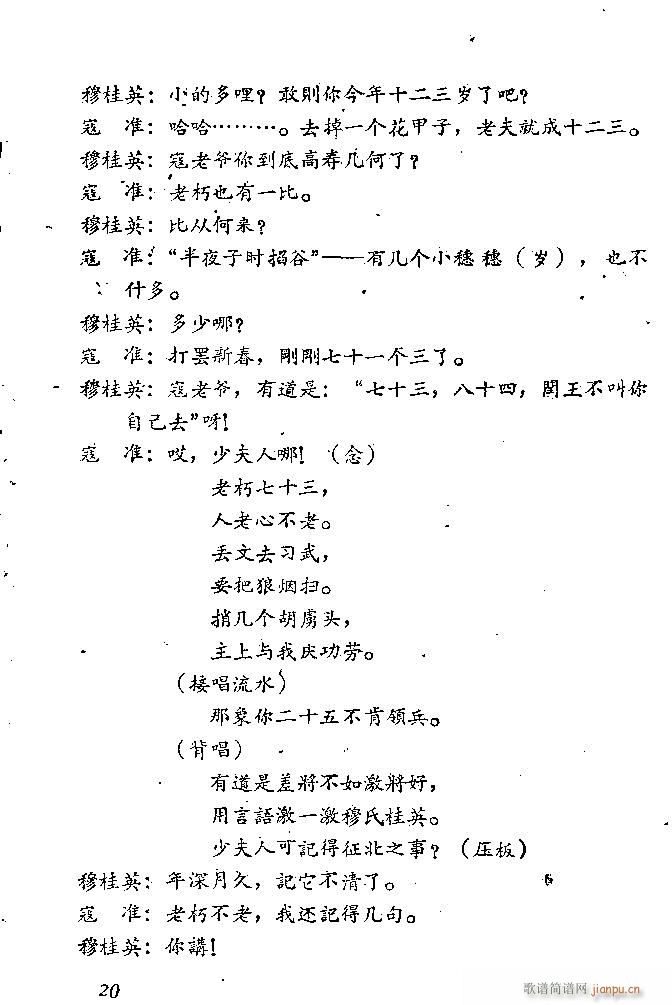 穆桂英：小的多哩？敢則你今年十二三岁了吧？
寇　准：哈哈………。去掉一个花甲子，老夫就成十二三。
穆桂英：寇老爷你到底高寿几何了？
寇　准：老朽也有一比。
穆桂英：比从何来？
寇　准：“半夜子时掐谷”——有几个小穗穗（岁），也不
什多。
穆桂英：多少哪？
寇　准：打罢新春，剛剛七十一个三了。
穆桂英：寇老爷，有道是：“七十三，八十四，閻王不叫你
自己去”呀！
寇　准：哎，少夫人哪！（念）
老朽七十三，
人老心不老。
丢文去习武，
要把狼烟扫。
捎几个胡虏头，
主上与我庆功劳。
（接唱流水）
那象你二十五不肯领兵。
（背唱）
有道是差將不如激將好，
用言語激一激穆氏桂英。
少夫人可記得征北之事？（压板）
穆桂英：年深月久，記它不清了。
寇　准：老朽不老，我还記得几句。
穆桂英：你講！
20
歌谱简谱网
jianpu.cn